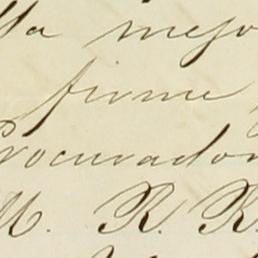 la mejo
firme
Procurador
M. R. R.